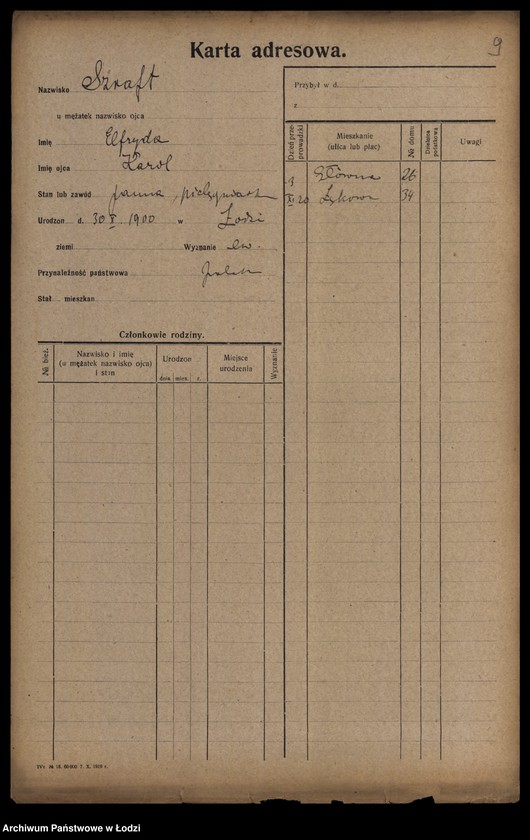 9
Karta adresowa.
Nazwisko Szraft
u mężatek nazwisko ojca
Imię Elfryda
Imię ojca Karol
Stan lub zawód panna, pielęgniark
Urodzon d. 30 X 1900 w Łodzi
ziemi Wyznanie ew.
Przynależność państwowa polsk
Stał. mieszkan
Członkowie rodziny.
№ bież.
Nazwisko i imię
(u mężatek nazwisko ojca)
i stan
Urodzon
dnia mies. r.
Miejsce
urodzenia
Wyznanie
Przybył w d.
z
Dzień prze-
prowadzki
Mieszkanie
(ulica lub plac)
№ domu
Dzielnica
podatkowa
Uwagi
Główna 26
9
XI 20 Łąkowa 34
7. X. 1919 r.
Archiwum Państwowe w Łodzi